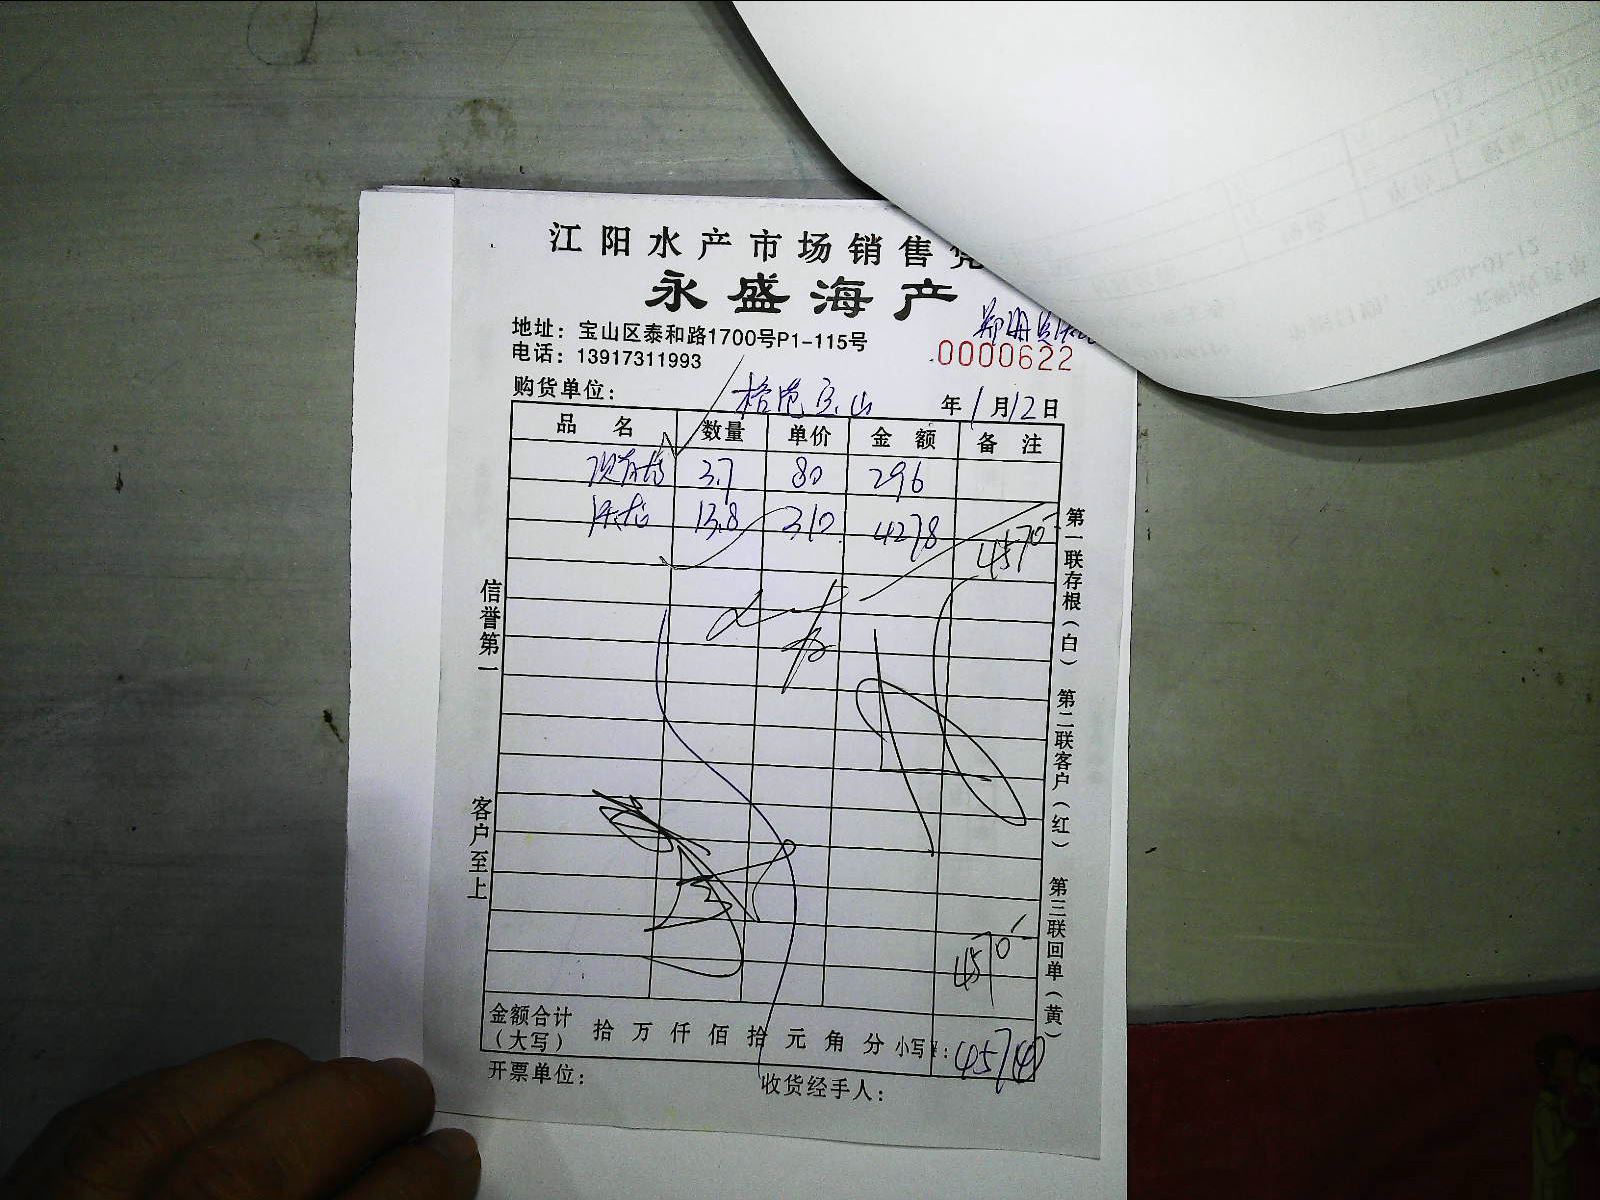 江阳水产市场销售凭
永盛海产
地址：宝山区泰和路1700号P1-115号
电话：13917311993
.0000622
购货单位： 宝山 年 1月12日
品 名 数量 单价 金 额 备 注
3.7 80 296
13.8 310 4278 4570
信誉第一
客户至上
第一联存根（白） 第二联客户（红） 第三联回单（黄）
4570
金额合计（大写） 拾 万 仟 佰 拾 元 角 分 小写¥: 4574
开票单位： 收货经手人：